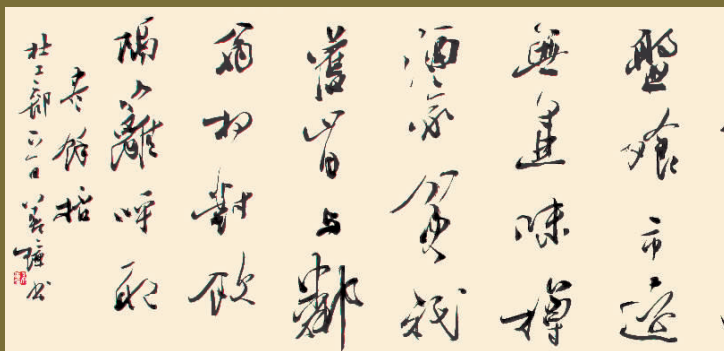 盤飧市遠
無兼味樽
酒家貧祇
舊肯与鄰
翁相對飲
隔籬呼取
盡餘杯
杜工部 书